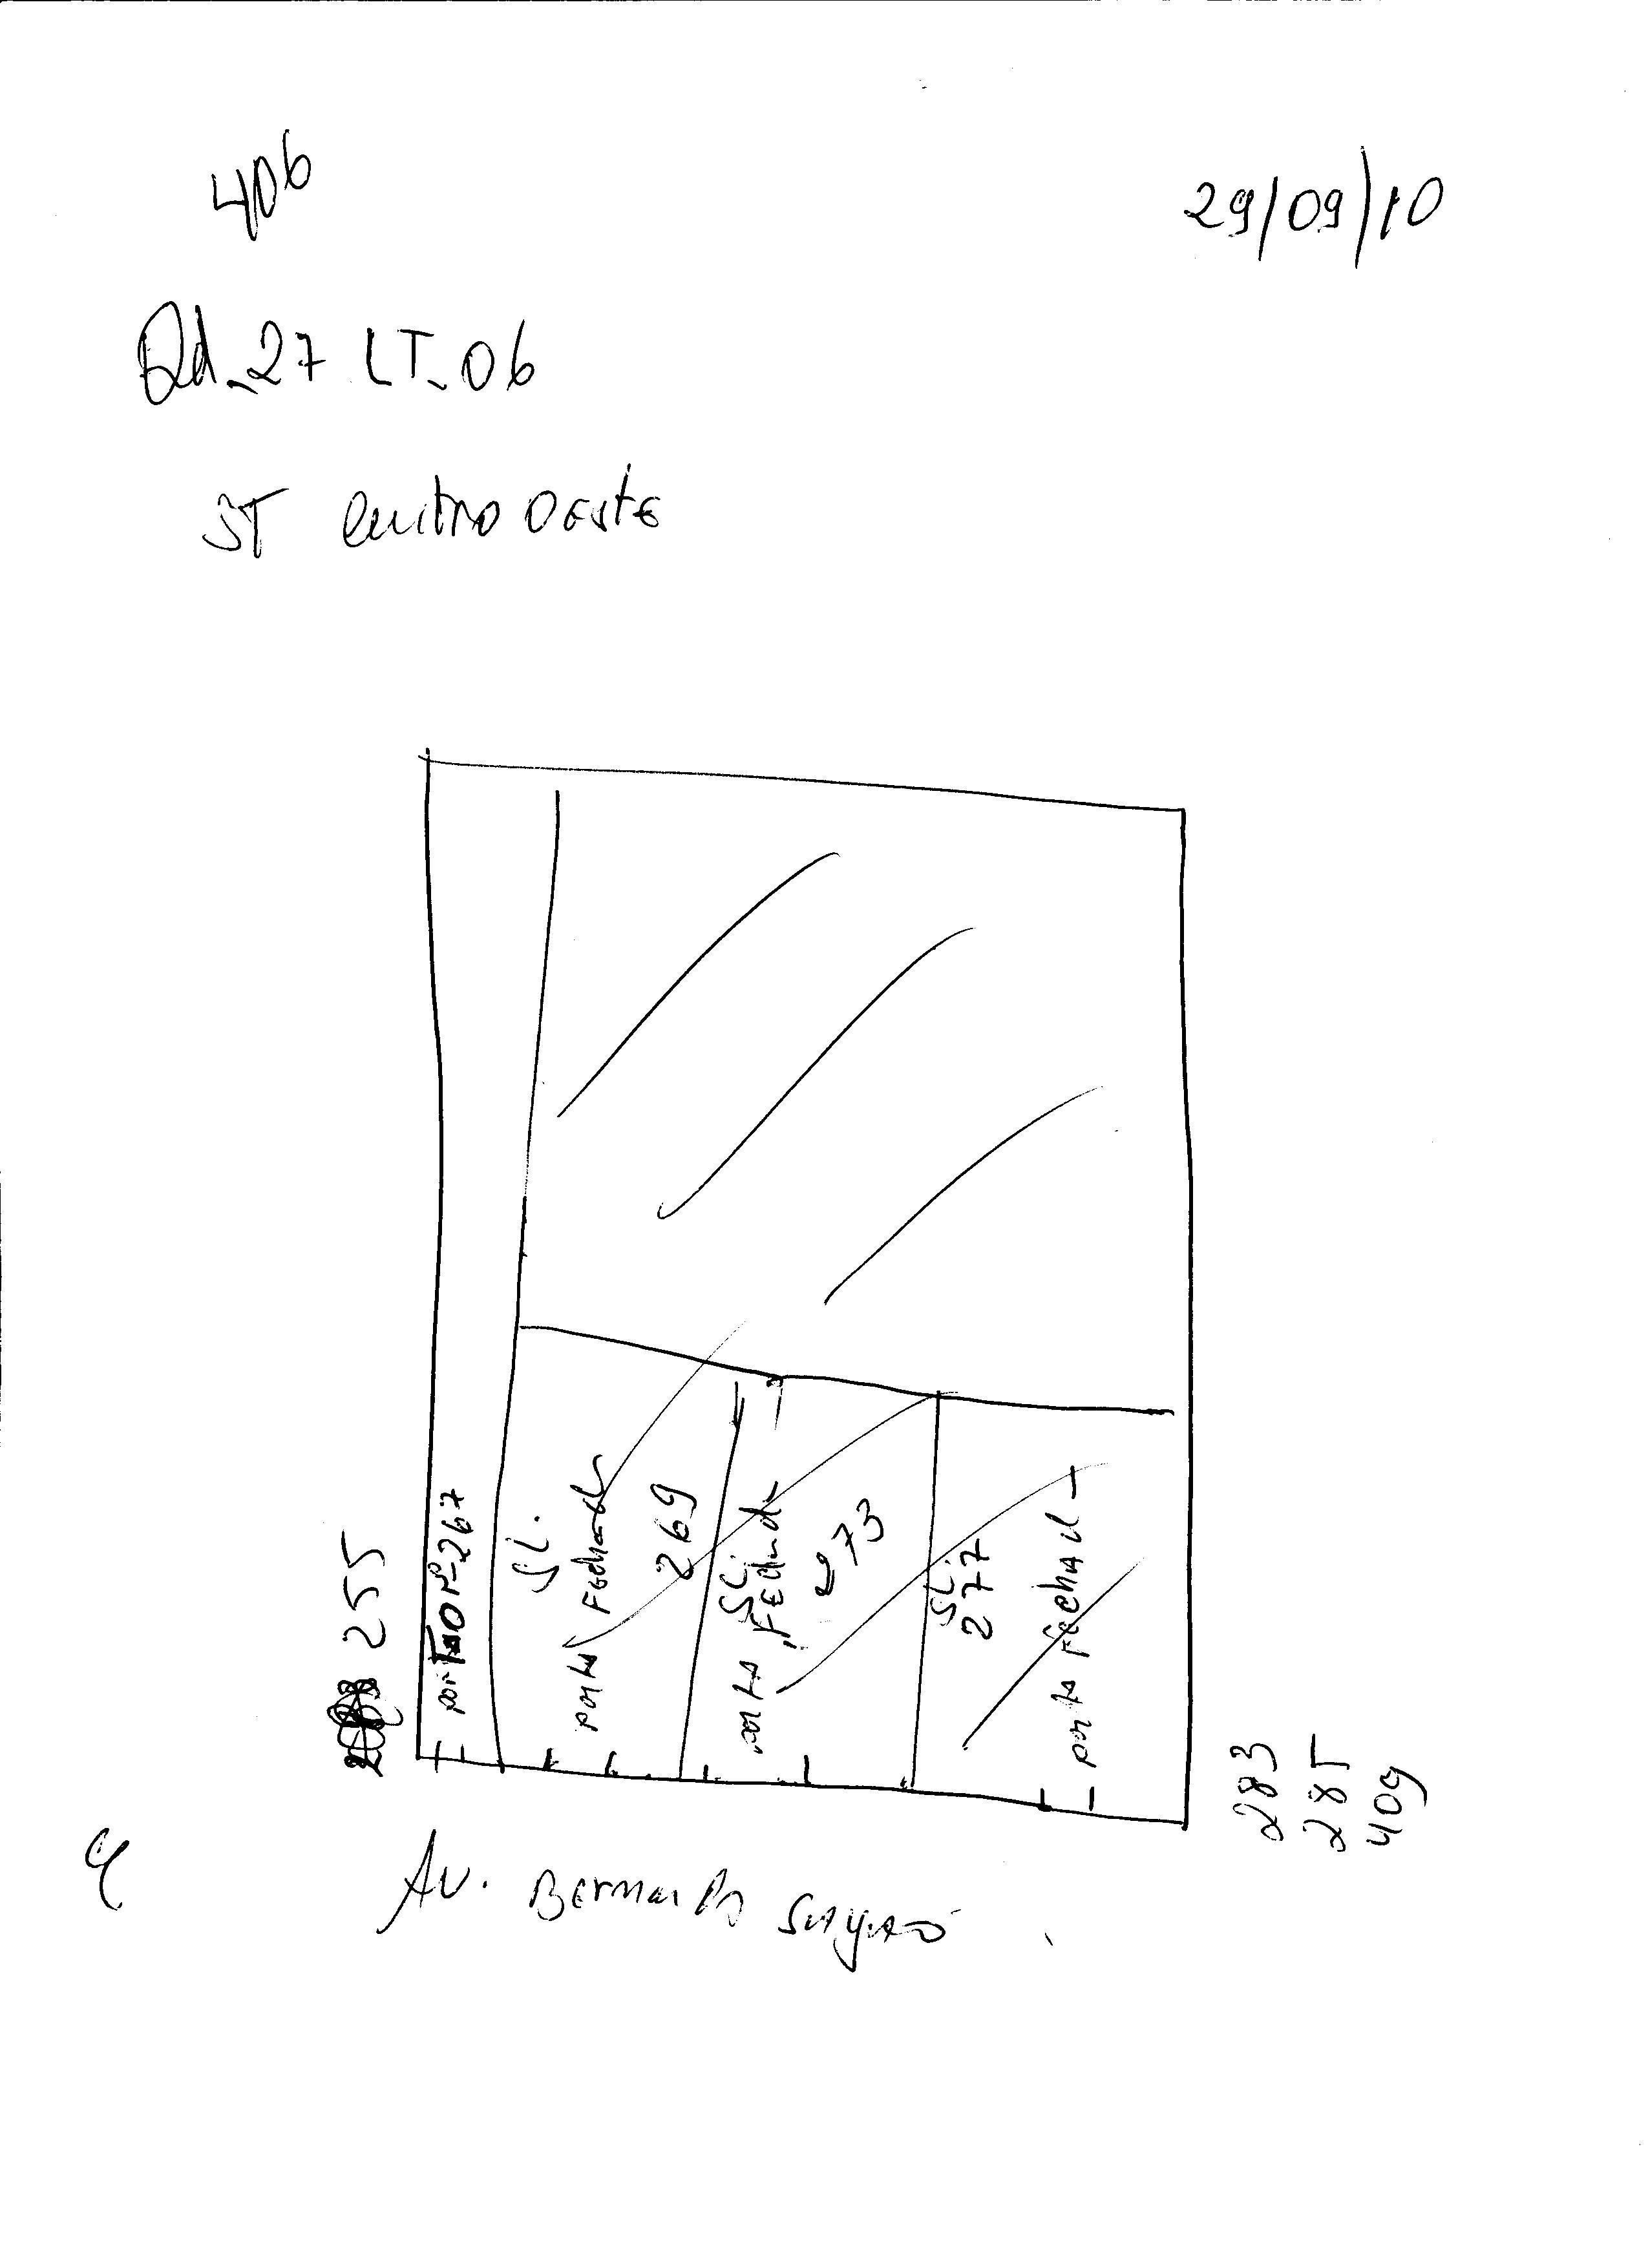 406
29/09/10
Qd-27 LT-06
ST centro oeste
255
portão nº-267
SL.
porta Fechada
269
SL
porta Fechada
273
SL
277
porta Fechada
283
285
409
Av. Bernardo Sayão